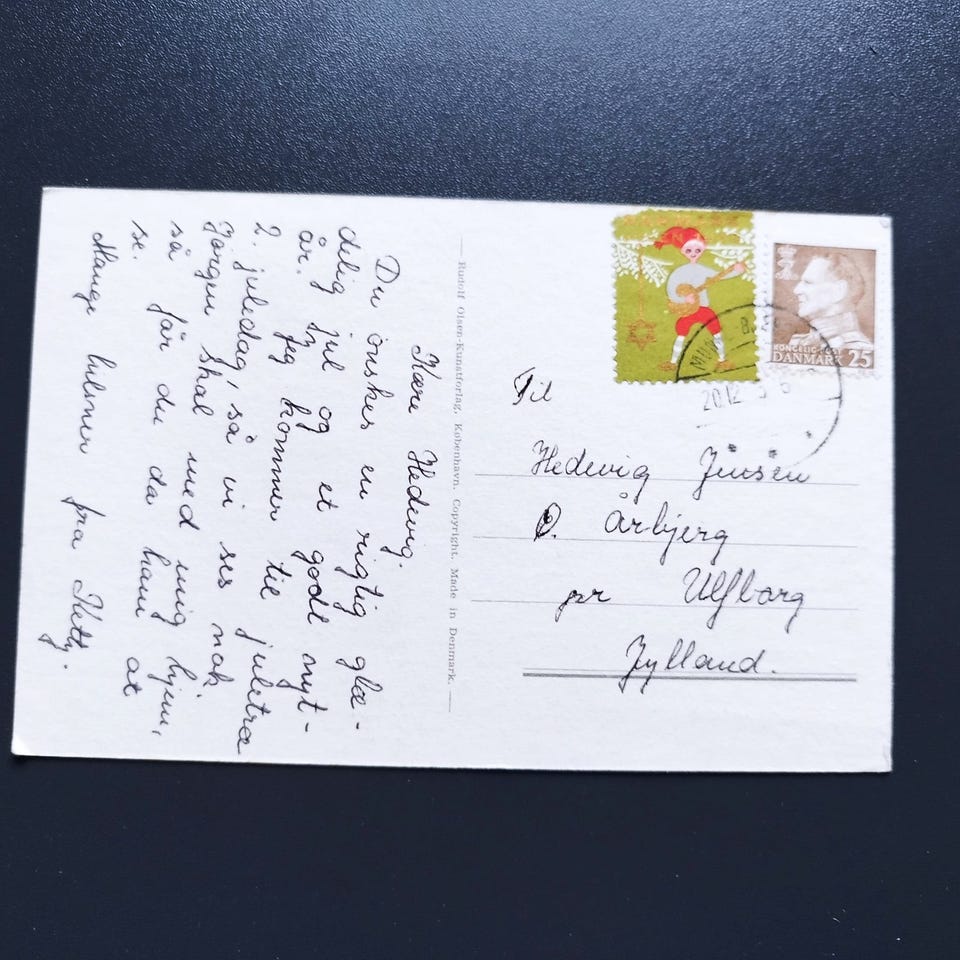 Kære Hedevig.
Du ønskes en rigtig glæ-
delig jul og et godt nyt-
år. Jeg kommer til juletræ
2. juledag, så vi ses nok
Jørgen skal med mig hjem,
så får du da ham at
se.
Mange hilsner fra Ketty.
Rudolf Olsen-Kunstforlag, København. Copyright. Made in Denmark.
KONGELIG POST
DANMARK 25
20.12
Til
Hedevig Jensen
Ø. Årbjerg
pr Ulfborg
Jylland.